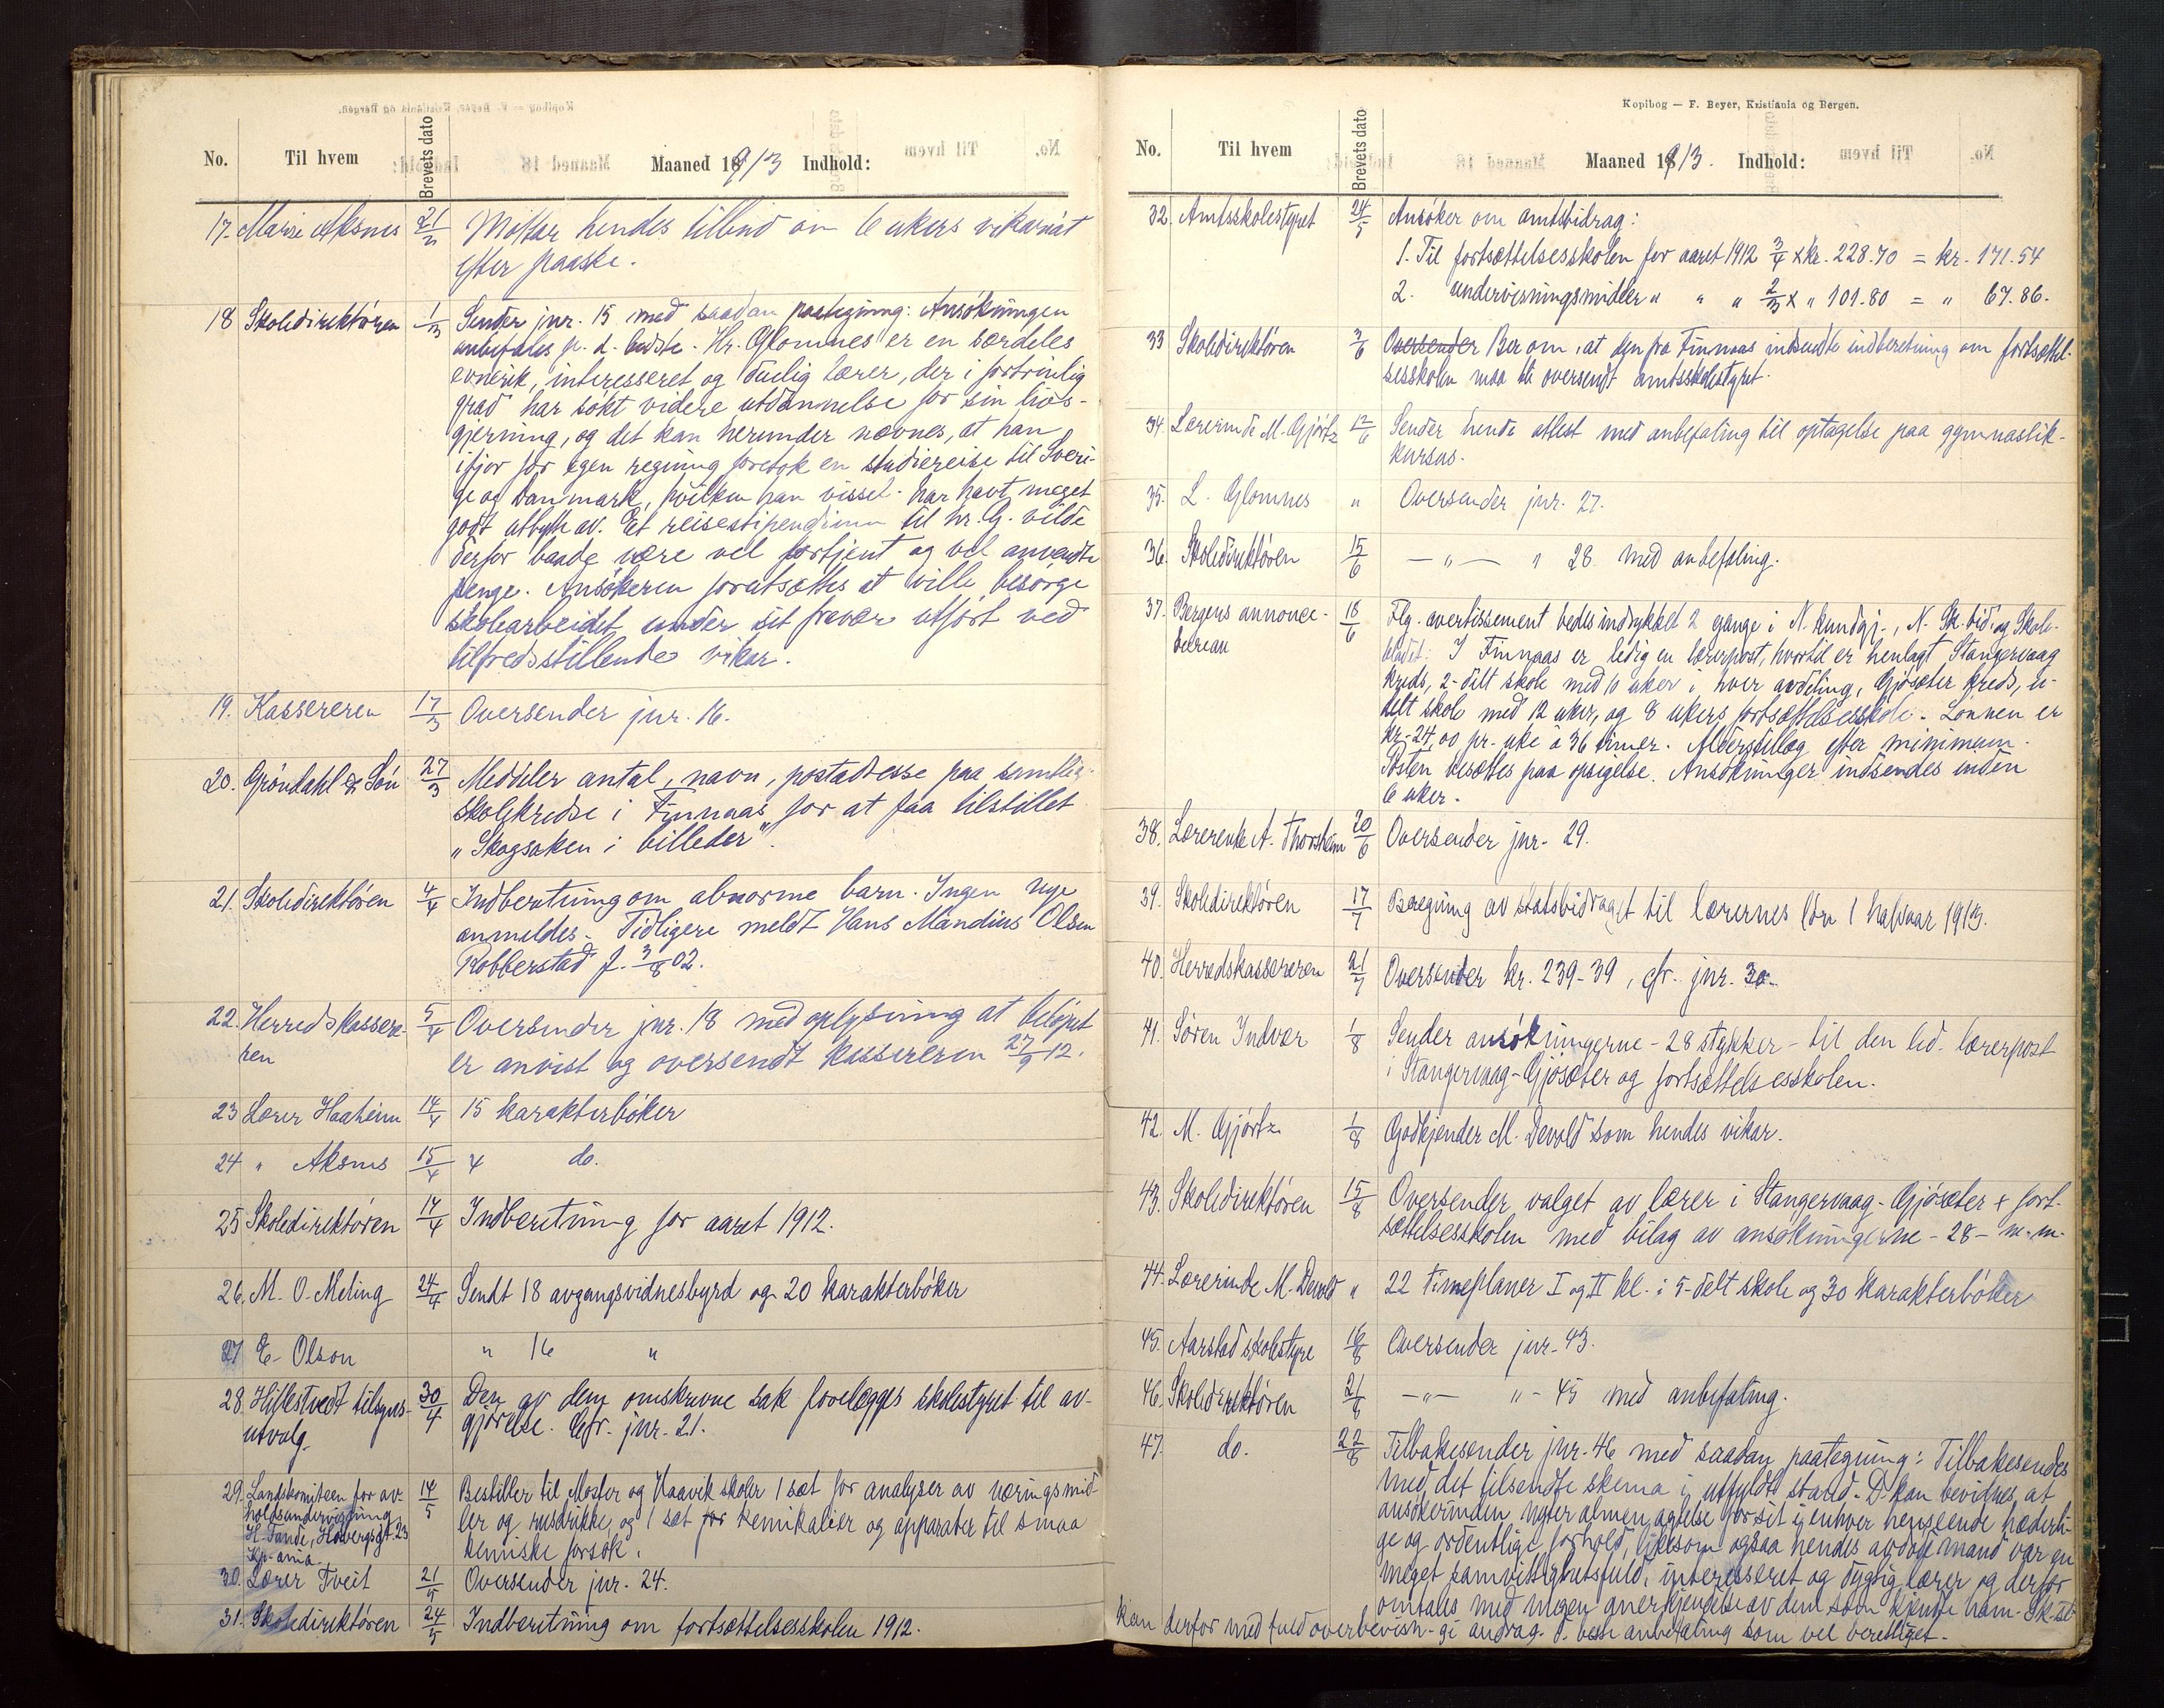 No. Til hvem Brevets dato Maaned 1913 Indhold:
17. Marie Aksnes 21/2 Mottar hendes tilbud om 6 ukers vikariat
efter paaske.
18 Skoledirektören 1/3 Sender jnr. 15 med saadan paategning: Ansökningen
anbefales p. d. bedste. Hr. Glomnes er en særdeles
evnerik, interesseret og duelig lærer, der i fortrinlig
grad har sökt videre utdannelse for sin livs-
gjerning, og det kan herunder nævnes, at han
ifjor for egen regning foretok en studiereise til Sveri-
ge og Danmark, hvilken han visset. har havt meget
godt utbytte av. Et reisestipendium til hr. G. vilde
derfor baade være vel fortjent og vel anvendte
penge. Ansökeren forutsættes at ville besörge
skolearbeidet under sit fravær utfört ved
tilfredsstillende vikar.
19. Kassereren 17/3 Oversender jnr. 16.
20. Gröndahl & Sön 27/3 Meddeler antal, navn, postadresse paa samtlig
skolekredse i Finnaas for at faa tilstillet
"Skogsaken i billeder".
21. Skoledirektören 4/4 Indberetning om abnorme barn. Ingen nye
anmeldes. Tidligere meldt Hans Mandius Olsen
Robberstad f. 3/8 02.
22. Herredskassere- 5/4 Oversender jnr. 18 med oplysning at belöpet
ren er anvist og oversendt kassereren 27/9 12.
23 Lærer Haaheim 14/4 15 karakterböker
24 " Aksnes 15/4 4 do.
25 Skoledirektören 17/4 Indberetning for aaret 1912.
26. M. O. Meling 24/4 Sendt 18 avgangsvidnesbyrd og 20 karakterböker
27 E. Olson " 16 "
28. Hillestvedt tilsyns- 30/4 Den av dem omskrevne sak forelægges skolestyret til av-
utvalg. gjörelse. Cfr. jnr. 21.
29. Landskomiteen for av- 14/5 Bestiller til Moster og Haavik skoler 1 sæt for analyser av næringsmid
holdsundervisning ler og rusdrikke, og 1 sæt for kemikalier og apparater til smaa
H. Sande, Hovergsgt. 23 kemiske forsök.
Kr.ania.
30. Lærer Tveit 21/5 Oversender jnr. 24.
31. Skoledirektören 24/5 Indberetning om fortsættelsesskolen 1912.
Kopibog — F. Beyer, Kristiania og Bergen.
No. Til hvem Brevets dato Maaned 1913. Indhold:
32. Amtsskolestyret 24/5 Ansöker om amtsbidrag:
1. Til fortsættelsesskolen for aaret 1912 3/4 x kr. 228.70 = kr. 171.54
2. undervisningsmidler " " " 2/3 x " 101.80 = " 67.86.
33 Skoledirektören 3/6 Oversender Ber om, at den fra Finnaas indsendte indberetning om fortsættel-
sesskolen maa bli oversendt amtsskolestyret.
34. Lærerinde M. Gjörtz 12/6 Sender hende attest med anbefaling til optagelse paa gymnastik-
kursus.
35. L. Glomnes " Oversender jnr. 27.
36. Skoledirektören 15/6 — " — " 28 med anbefaling.
37. Bergens annonce- 18/6 Flg. avertissement bedes indrykket 2 gange i N. Kundgj., N. Sk.tid. og Skole-
bureau bladet: I Finnaas er ledig en lærerpost, hvortil er henlagt Stangervaag
kreds, 2-delt skole med 10 uker i hver avdeling, Gjösæter kreds, u-
delt skole med 12 uker, og 8 ukers fortsættelsesskole. Lönnen er
kr. 24,00 pr. uke à 36 timer. Alderstillæg efter minimum.
Posten besættes paa opsigelse. Ansökninger indsendes inden
6 uker.
38. Lærerinde A. Thorsheim 20/6 Oversender jnr. 29.
39. Skoledirektören 17/7 Beregning av statsbidraget til lærernes lön 1 halvaar 1913.
40. Herredskassereren 21/7 Oversender kr. 239.39, cfr. jnr. 30.
41. Sören Indvær 1/8 Sender ansökningerne - 28 stykker - til den led. lærerpost
i Stangervaag-Gjösæter og fortsættelsesskolen.
42. M. Gjörtz 1/8 Godkjender M. Devold som hendes vikar.
43. Skoledirektören 15/8 Oversender valget av lærer i Stangervaag-Gjösæter + fort-
sættelsesskolen med bilag av ansökningerne - 28 - m. m.
44. Lærerinde M. Devold " 22 timeplaner I og II kl. i 5-delt skole og 30 karakterböker
45. Aarstad skolestyre 16/8 Oversender jnr. 43.
46. Skoledirektören 21/8 — " — " - 45 med anbefaling.
47. do. 22/8 Tilbakesender jnr. 46 med saadan paategning: Tilbakesendes
med det tilsendte skema i utfyldt stand. D. kan bevidnes, at
ansökerinden nyter almen agtelse for sit i enhver henseende hæderli-
ge og ordentlige forhold, likesom ogsaa hendes avdöde mand var en
meget samvittighetsfuld, interesseret og dygtig lærer og derfor
omtales med megen anerkjendelse av dem som kjendte ham. Sk.st.
kan derfor med fuld overbevisn. gi andrag. d. beste anbefaling som vel berettiget.